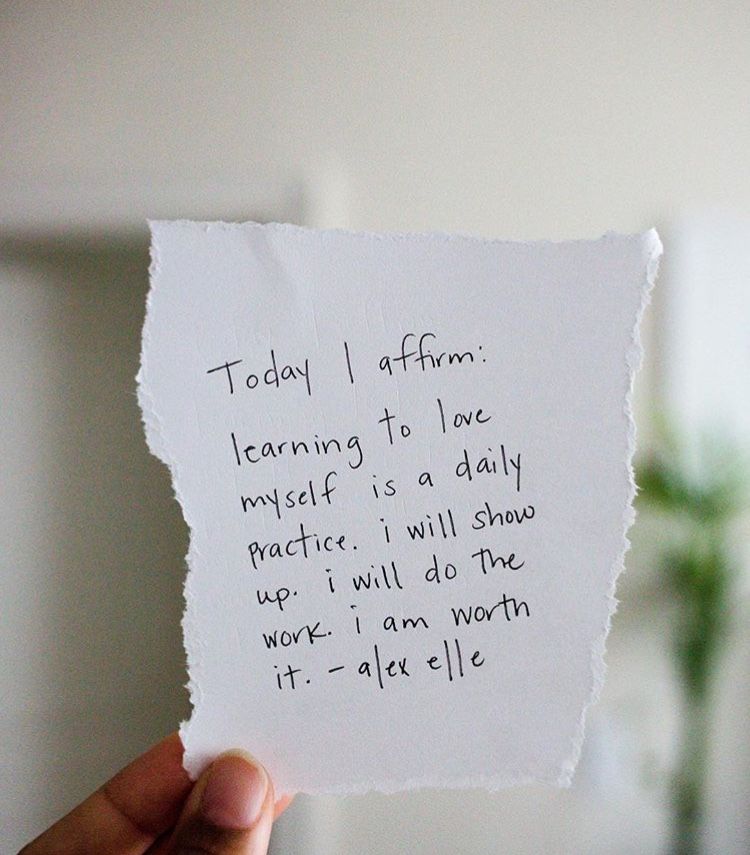 Today I affirm:
learning to love
myself is a daily
practice. i will show
up. i will do the
work. i am worth
it. - alex elle